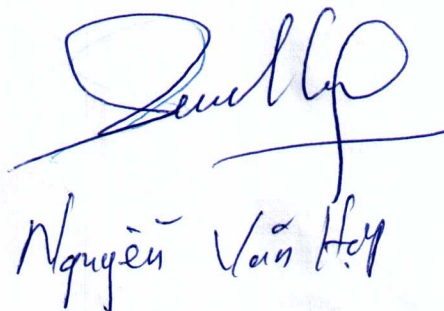 Nguyễn Văn Hợp